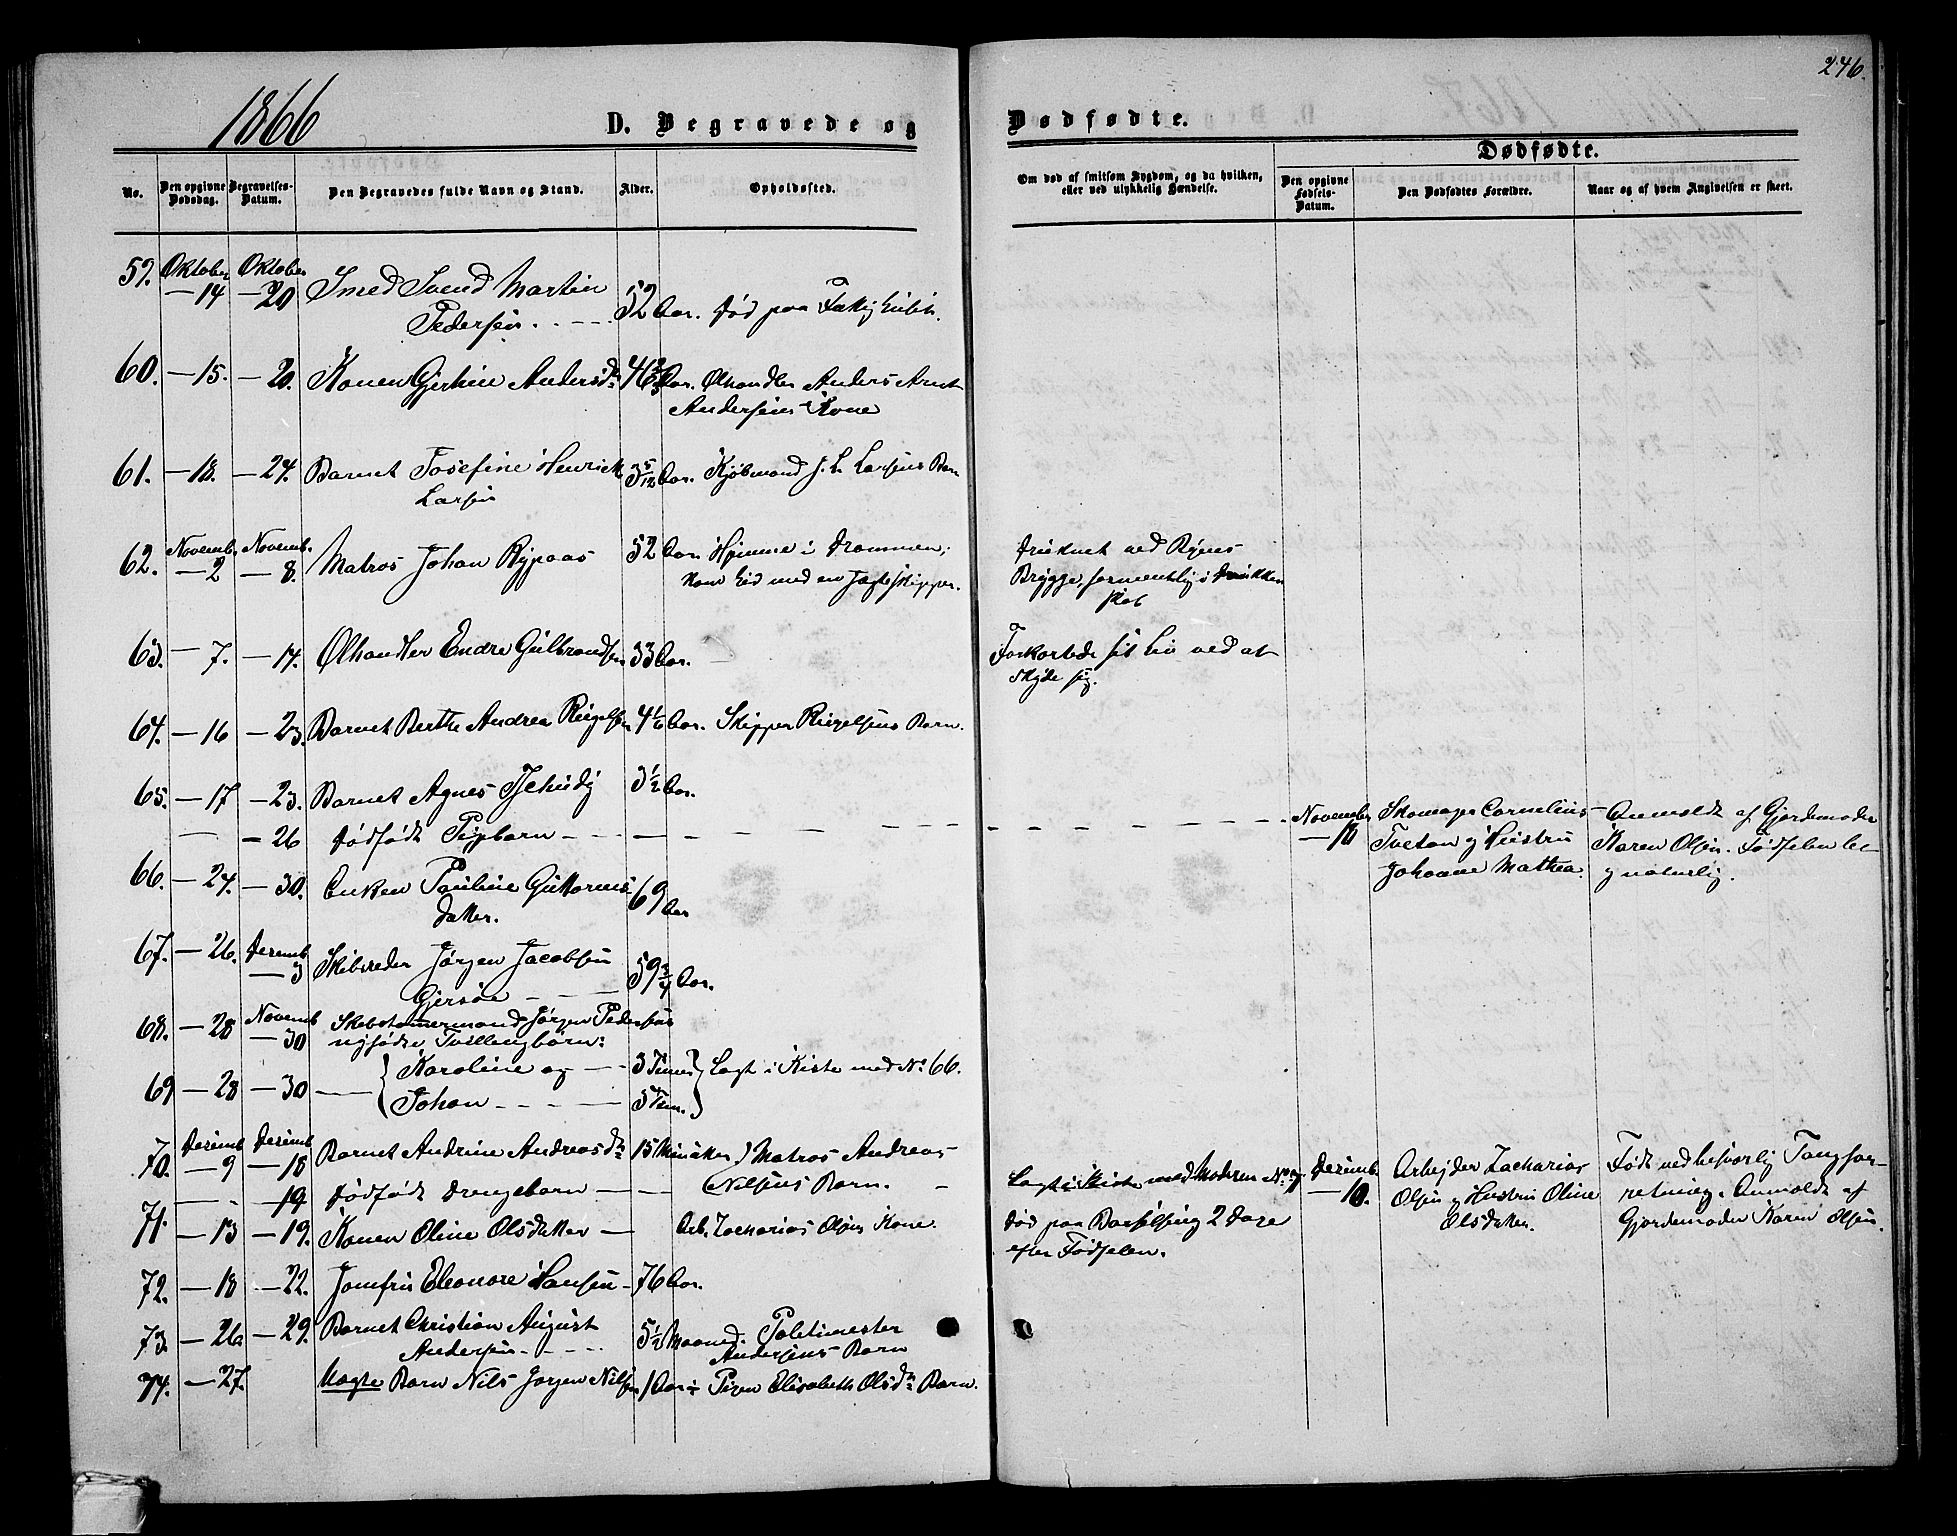 246.
1866
D. Begravede og Dødfødte.
Dødfødte.
No. Den opgivne Dødsdag. Begravelses-Datum. Den Begravedes fulde Navn og Stand. Alder. Opholdssted. Om død af smitsom Sygdom, og da hvilken, eller ved ulykkelig Hændelse. Den opgivne Fødsels-Datum. Den Dødfødtes Forældre. Naar og af hvem Angivelsen er skeet.
59. Oktober Oktober Smed Svend Martin
—14 —20 Pedersen. 52 Aar. død paa
60. —15. —20. Konen Andersdr 46 Aar. Ølhandler Anders Arnt
Andersens Kone
61. —18. —24. Barnet Josefine Henrick 3 5/12 Aar. Kjøbmand J. L. Larsens Barn
Larsen
62. Novemb. Novemb. Matros Johan Rypaas 52 Aar. Hjemme i Drammen, Druknet ved Ryens
—2 —8. kom hid med en Jagteskipper. Brygge, formentlig i Drukken
skab
63. —7. —14. Ølhandler Endre Gulbrandsen 33 Aar. — Forkortede sit Liv ved at
skyde sig.
64. —16 —23. Barnet Berthe Andrea 4½ Aar. Skipper Barn.
65. —17 —23. Barnet Agnes Tschudy 3½ Aar.
— —26 Dødfødt Pigebarn — — — November Skomager Cornelius — Anmeldt af Gjordemoder
—18 Tveten og Hustru Karen Olsen. Fødselen let
Johanne Mathea. og naturlig.
66. —24. —30. Enken Pauline Guttorms-
datter. 69 Aar
67. —26. Desemb Skibsreder Jørgen Jacobsen
—3 Gjersøe — — — 59¾ Aar.
68. —28 Novemb Skibstømermand Jørgen Pedersens
—30 nyfødte Tvillingbørn:
Karoline og — — 3 Timer } Lagt i Kiste med No 66.
69 —28 —30 — Johan — — — 5 Tim.
70. Desemb Desemb Barnet Andrine Andreasdr 15 Minuter) Matros Andreas
—9 —18 (Nilsens Barn. Lagt i Kiste med Moderen No 71. Desemb. Arbejder Zacharias Født ved besværlig Tangfor-
— —19 Dødfødt Drengebarn — — —10. Olsen og Hustru Oline retning. Anmeldt af
Olsdatter. Gjordemoder Karen Olsen.
71. —13 —19. Konen Oline Olsdatter — Arb. Zacharias Olsens Kone. død paa Barselseng 2 Dage
efter Fødselen.
72. —18 —22. Jomfru Eleonore Hansen — 76 Aar.
73. —26 —29. Barnet Christian August 5½ Maaned. Politimester
Andersen — — — Andersens Barn
74. —27. Uægte Barn Nils Jørgen Nilsen 1 Aar Pigen Elisabeth Olsdr Barn.